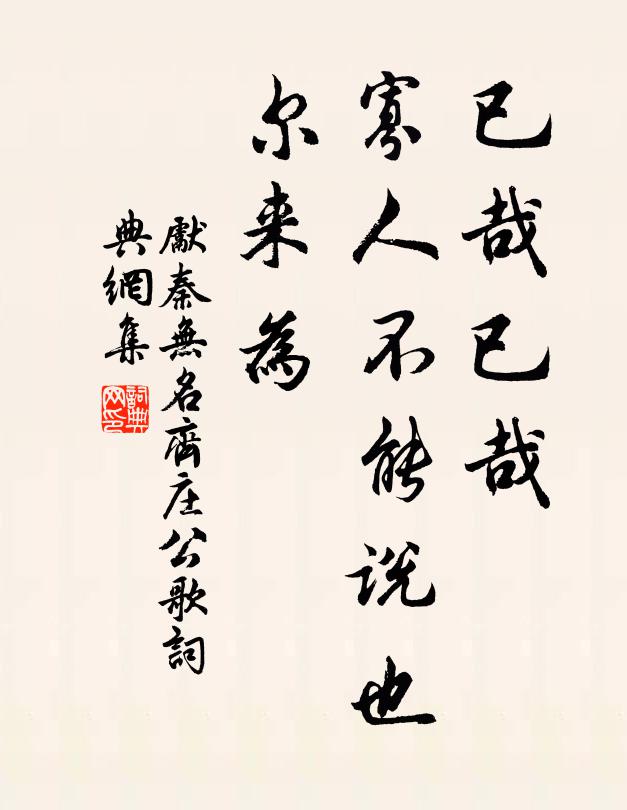 已哉已哉
寡人不能説也
尔来為
獻秦無名齊庄公歌詞
典網集
詞典
网印